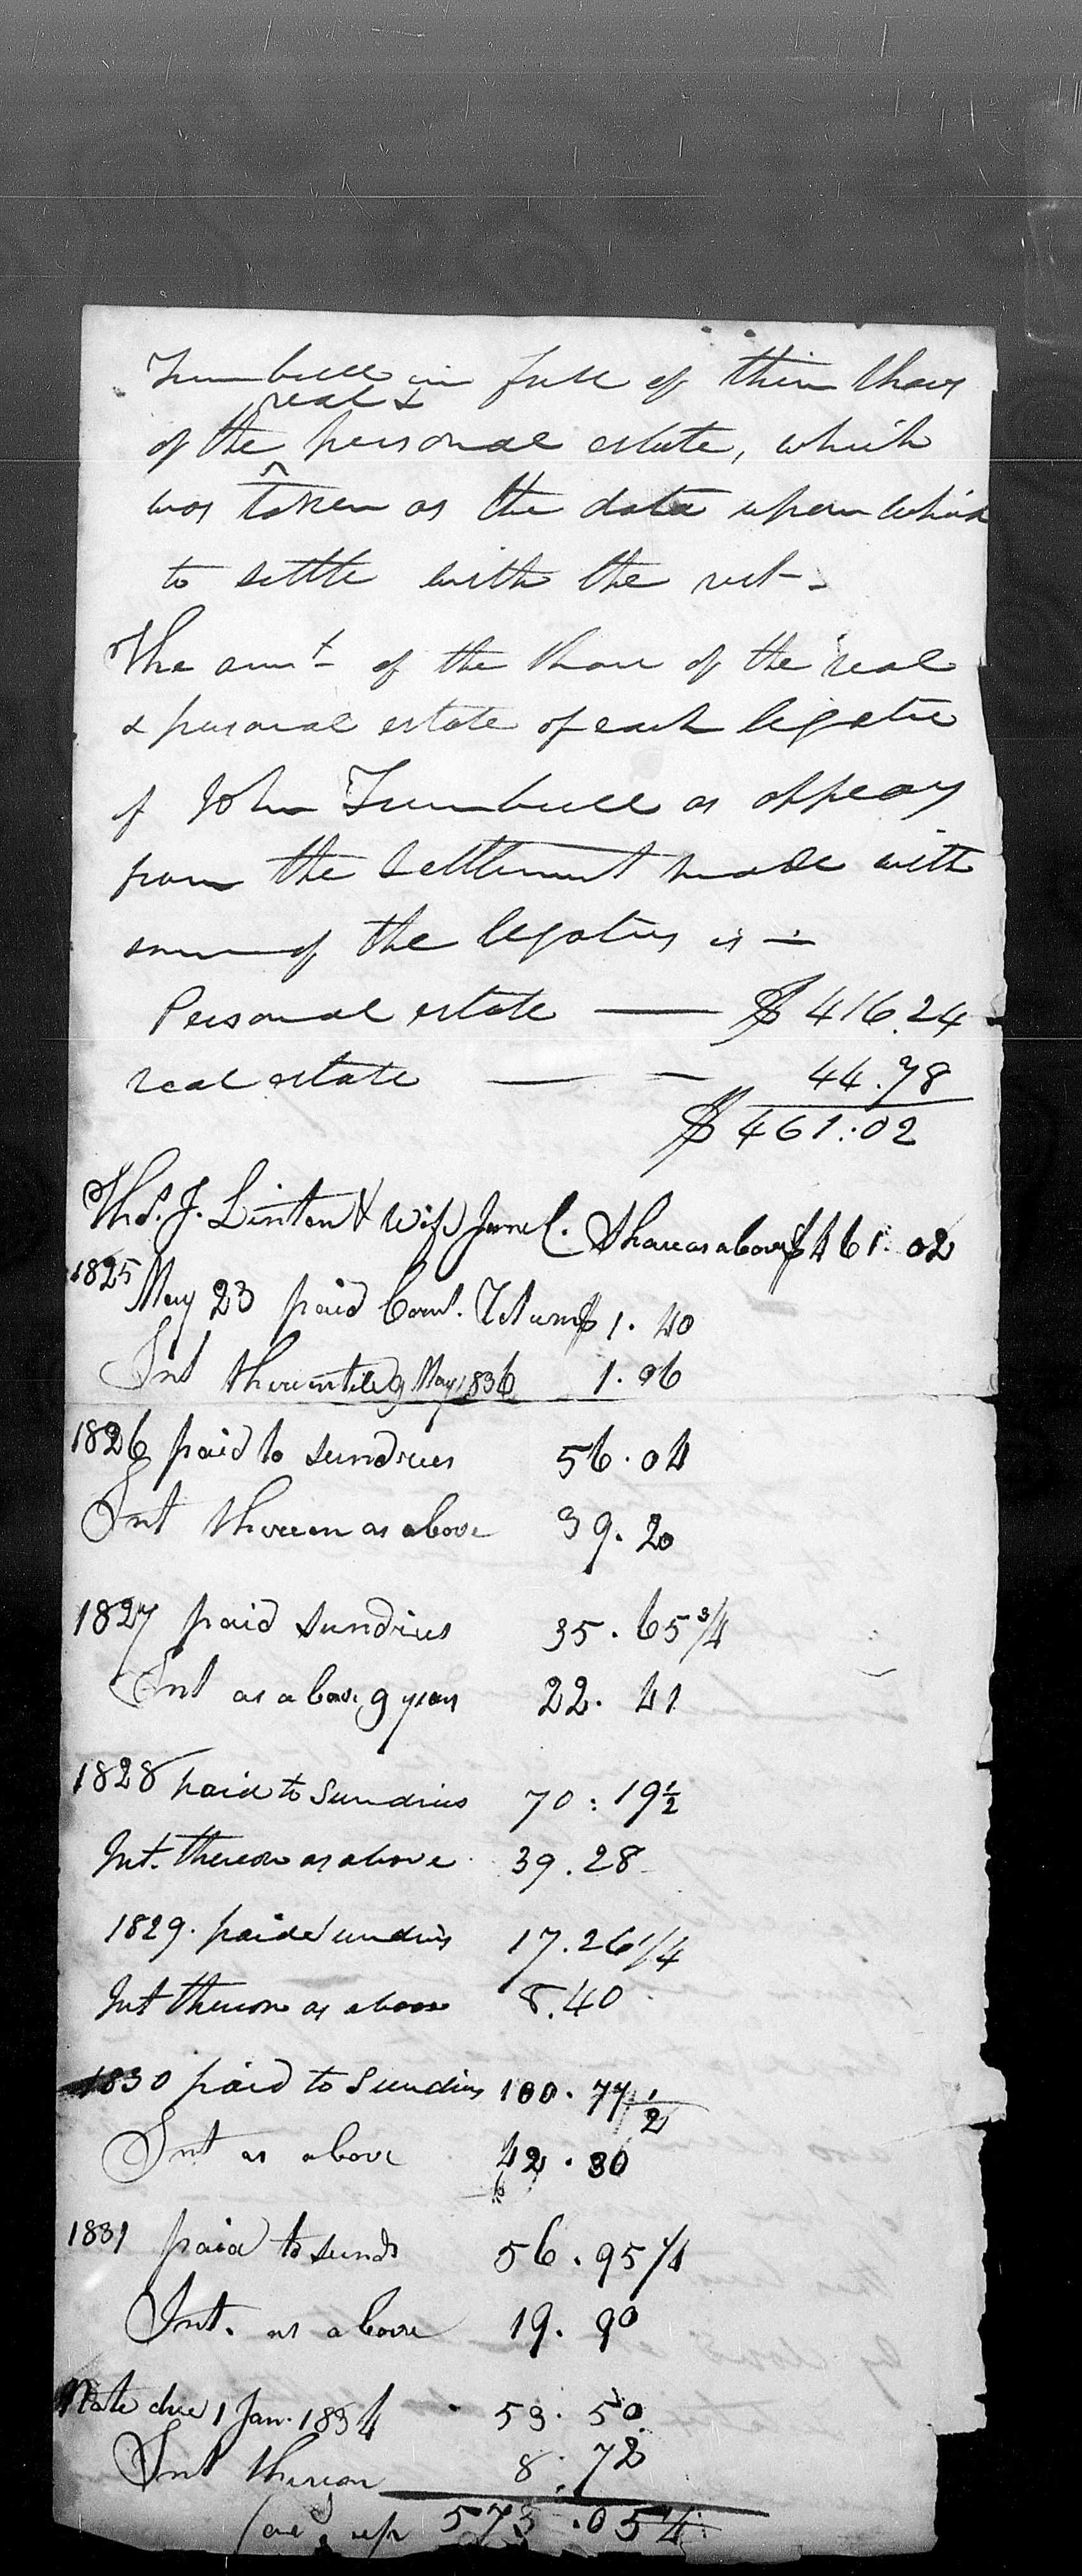 Turnbull in full of their shares
real &
of the ^ personal estate, which
was taken as the data upon which
to settle with the rest -
The amt of the share of the real
& personal estate of each legatee
of John Turnbull as appears
from the settlement made with
some of the legatees is -
Personal estate — $ 416.24
real estate — — 44.78
$ 461.02
Thos. J. Linton & wife Jane C. Share as above $461.02
1825
May 23 paid $1.40
Int thereon till 9 May 1836 1.06
1826 paid to sundries 56.04
Int thereon as above 39.20
1827 paid sundries 35.65 3/4
Int as above 9 years 22.41
1828 paid to Sundries 70:19 1/2
Int. thereon as above 39.28
1829. paid sundries 17.26 1/4
Int thereon as above 8.40
1830 paid to Sundries 100.77 1/2
Int as above 42.30
1831 paid to sunds 56.95 1/4
Int. as above 19.90
Note due 1 Jan. 1834 53.50
Int thereon 8.72
up 573.05 4